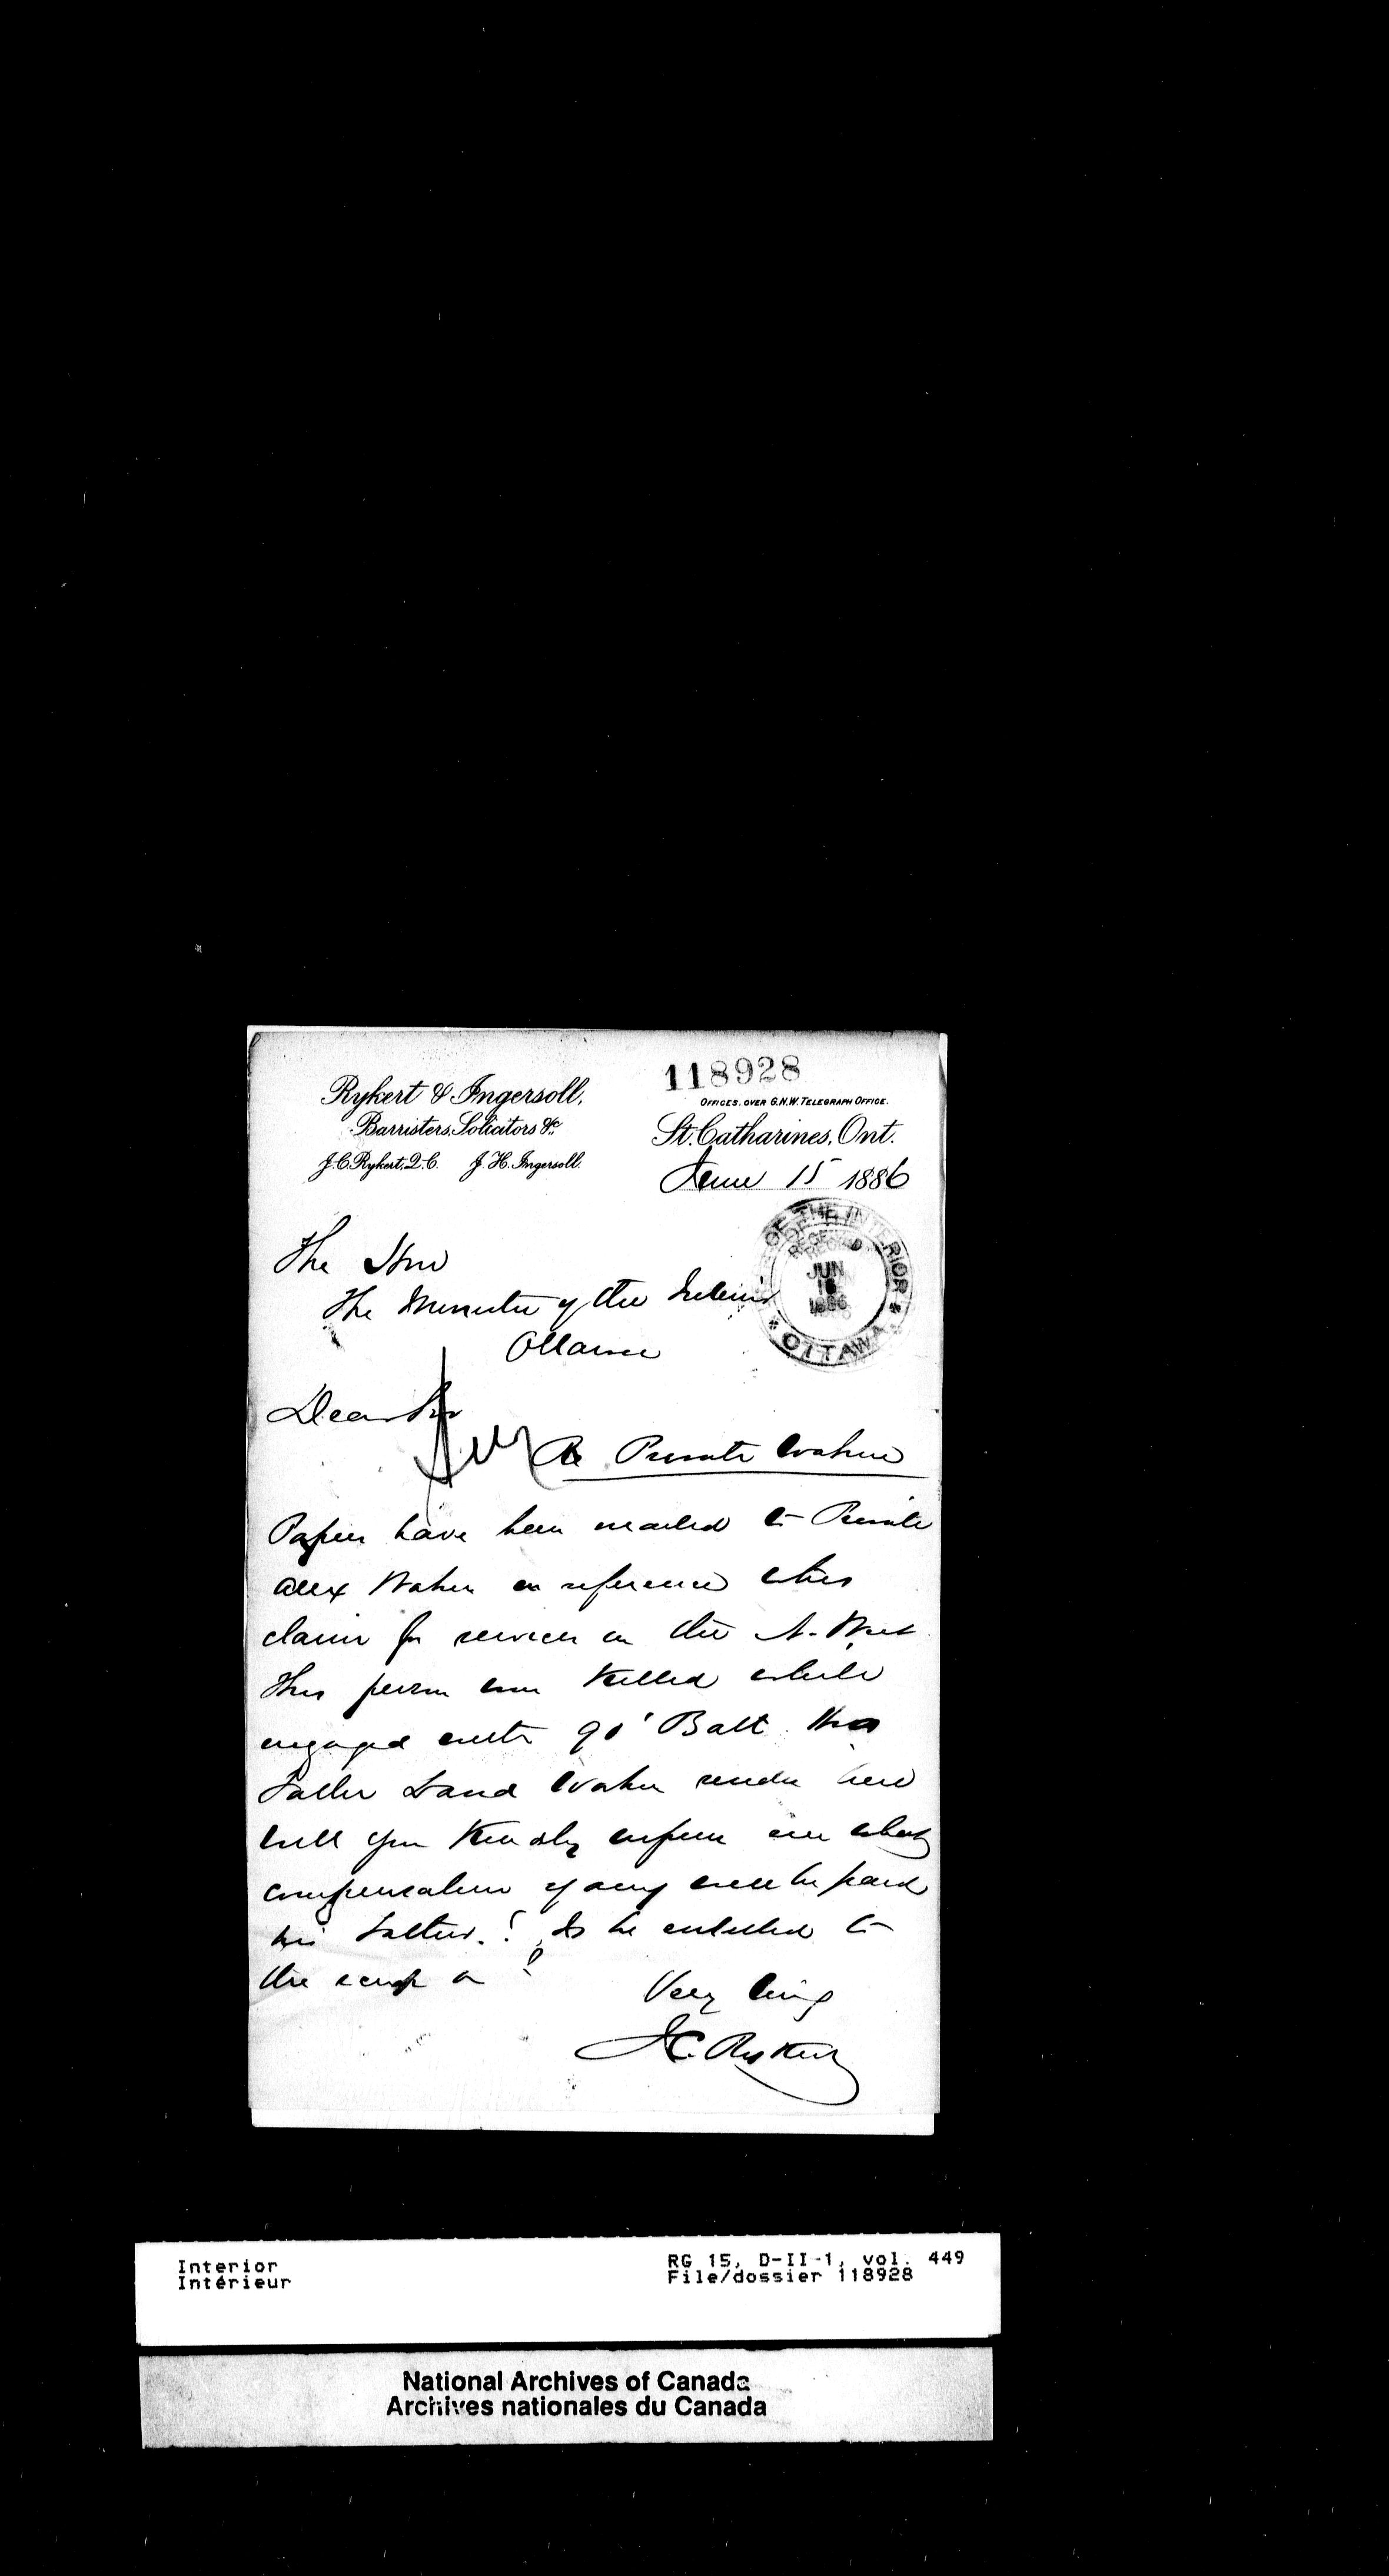 118928
Rykert & Ingersoll,
Barristers, Solicitors &c.
J. C. Rykert, Q. C. J. H. Ingersoll.
OFFICES, OVER G.N.W. TELEGRAPH OFFICE.
St. Catharines, Ont.
June 15 1886
OF THE INTERIOR
JUN
16
1886
OTTAWA
The Hon
The Minister of the Interior
Ottawa
Dear Sir
Re Private Watson
Papers have been mailed to Private
Alex Watson in reference to his
claim for services in the N. West
This person was killed while
engaged with 90' Batt. His
Father David Watson resides here
Will you kindly inform me what
compensation if any will be paid
his father.? Is he entitled to
the scrip
Very truly
J.C. Rykert
Interior
Intérieur
RG 15, D-II-1, vol. 449
File/dossier 118928
National Archives of Canada
Archives nationales du Canada